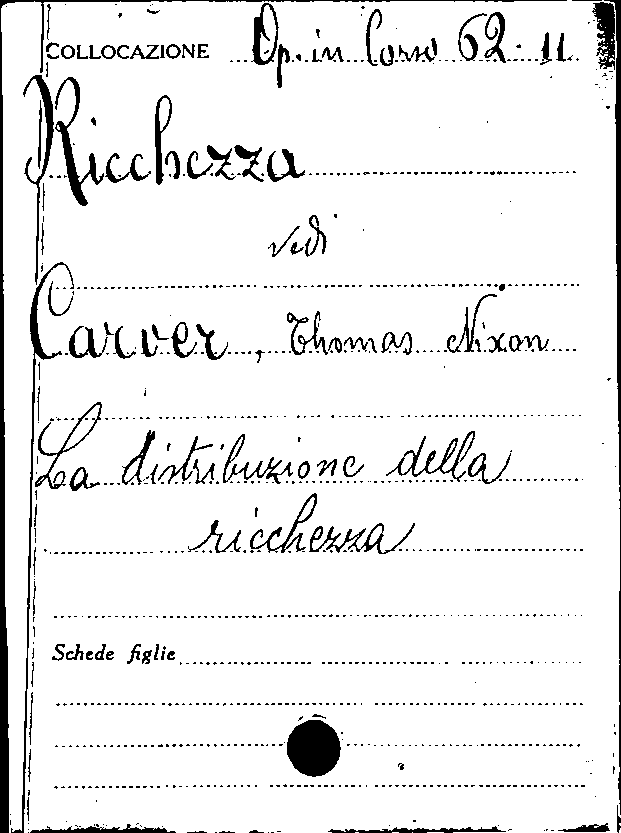 COLLOCAZIONE Op. in Corso 62. 11
Ricchezza
vedi
Carver, Thomas Nixon
La distribuzione della
ricchezza
Schede figlie